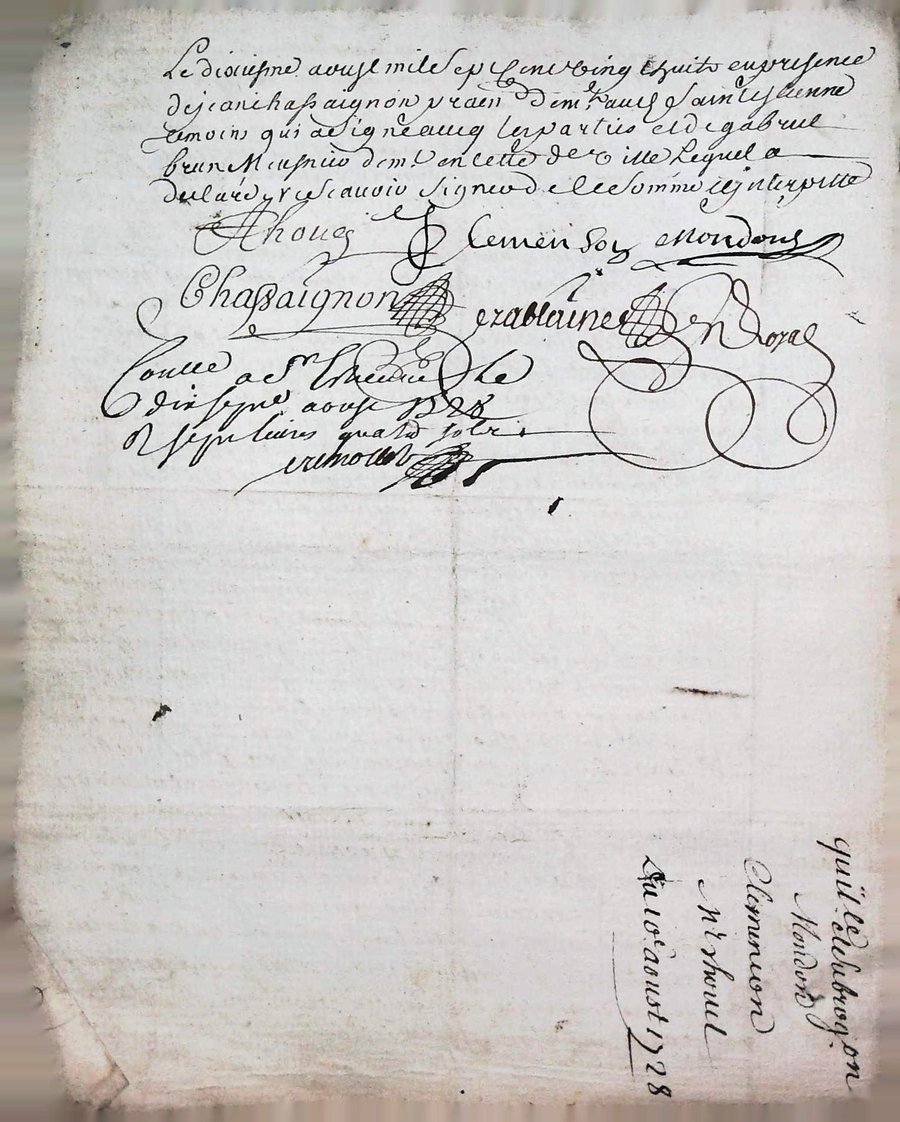 Le dixiesme aoust mil sept cent vingt huit en presence
de jean chassaignon praen demt aud Saint estienne
temoins qui a signé avecq les parties et de gabriel
brun Meusnier demt en cette de ville Lequel a
declaré ne scavoir signer de ce somme et interpellé
Rhouet Clemenson Mondon
Chassaignon
N Royal
Controllé a St Estienne Le
dix sepme aoust 1728
R sept livres quatre sols
quitte et subrogaon
Mondon
Clemenson
Mr rhouet
Du 10e aoust 1728